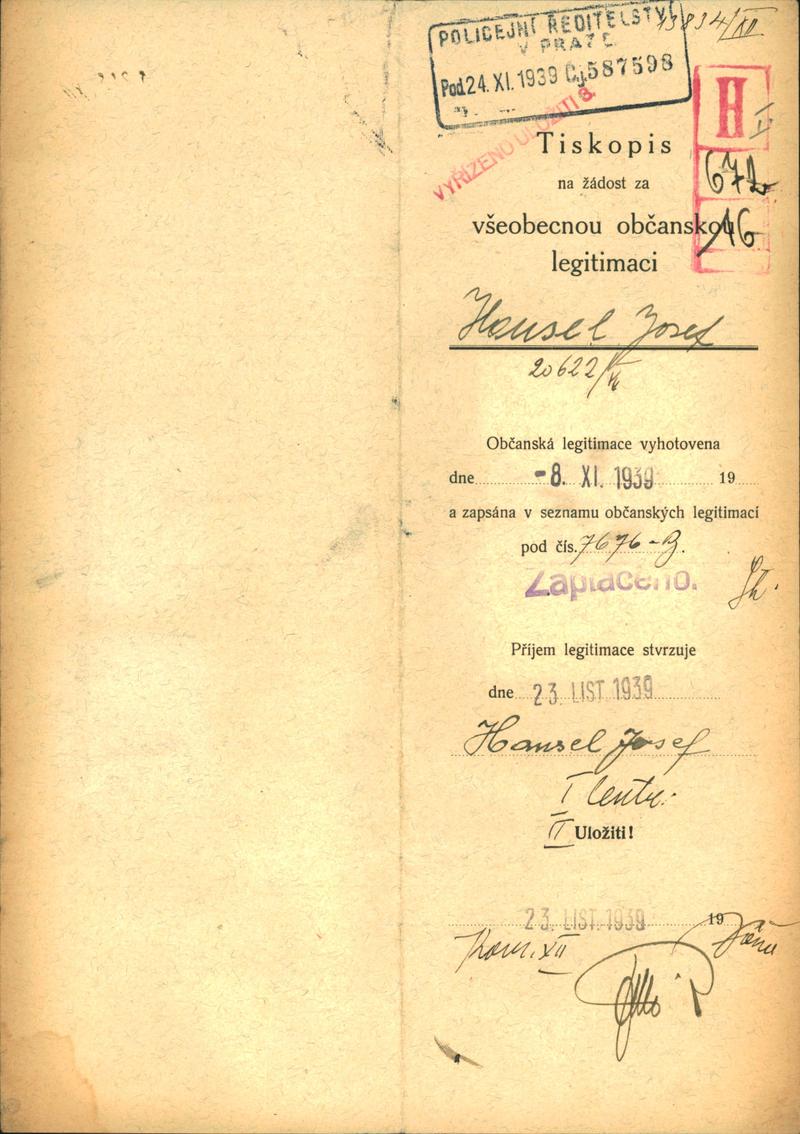 13834/XII
POLICEJNÍ ŘEDITELSTVÍ
V PRAZE
Pod. 24. XI. 1939 Čj. 587598
VYŘÍZENO ULOŽITI 8.
H
II
672
16
Tiskopis
na žádost za
všeobecnou občanskou
legitimaci
Hansel Josef
20622/
Občanská legitimace vyhotovena
dne -8. XI. 1939 19
a zapsána v seznamu občanských legitimací
pod čís. 7676-B.
Zaplaceno.
Příjem legitimace stvrzuje
dne 23. LIST. 1939
Hansel Josef
I Centr.
II Uložiti!
23. LIST. 1939 19
Kom. XII